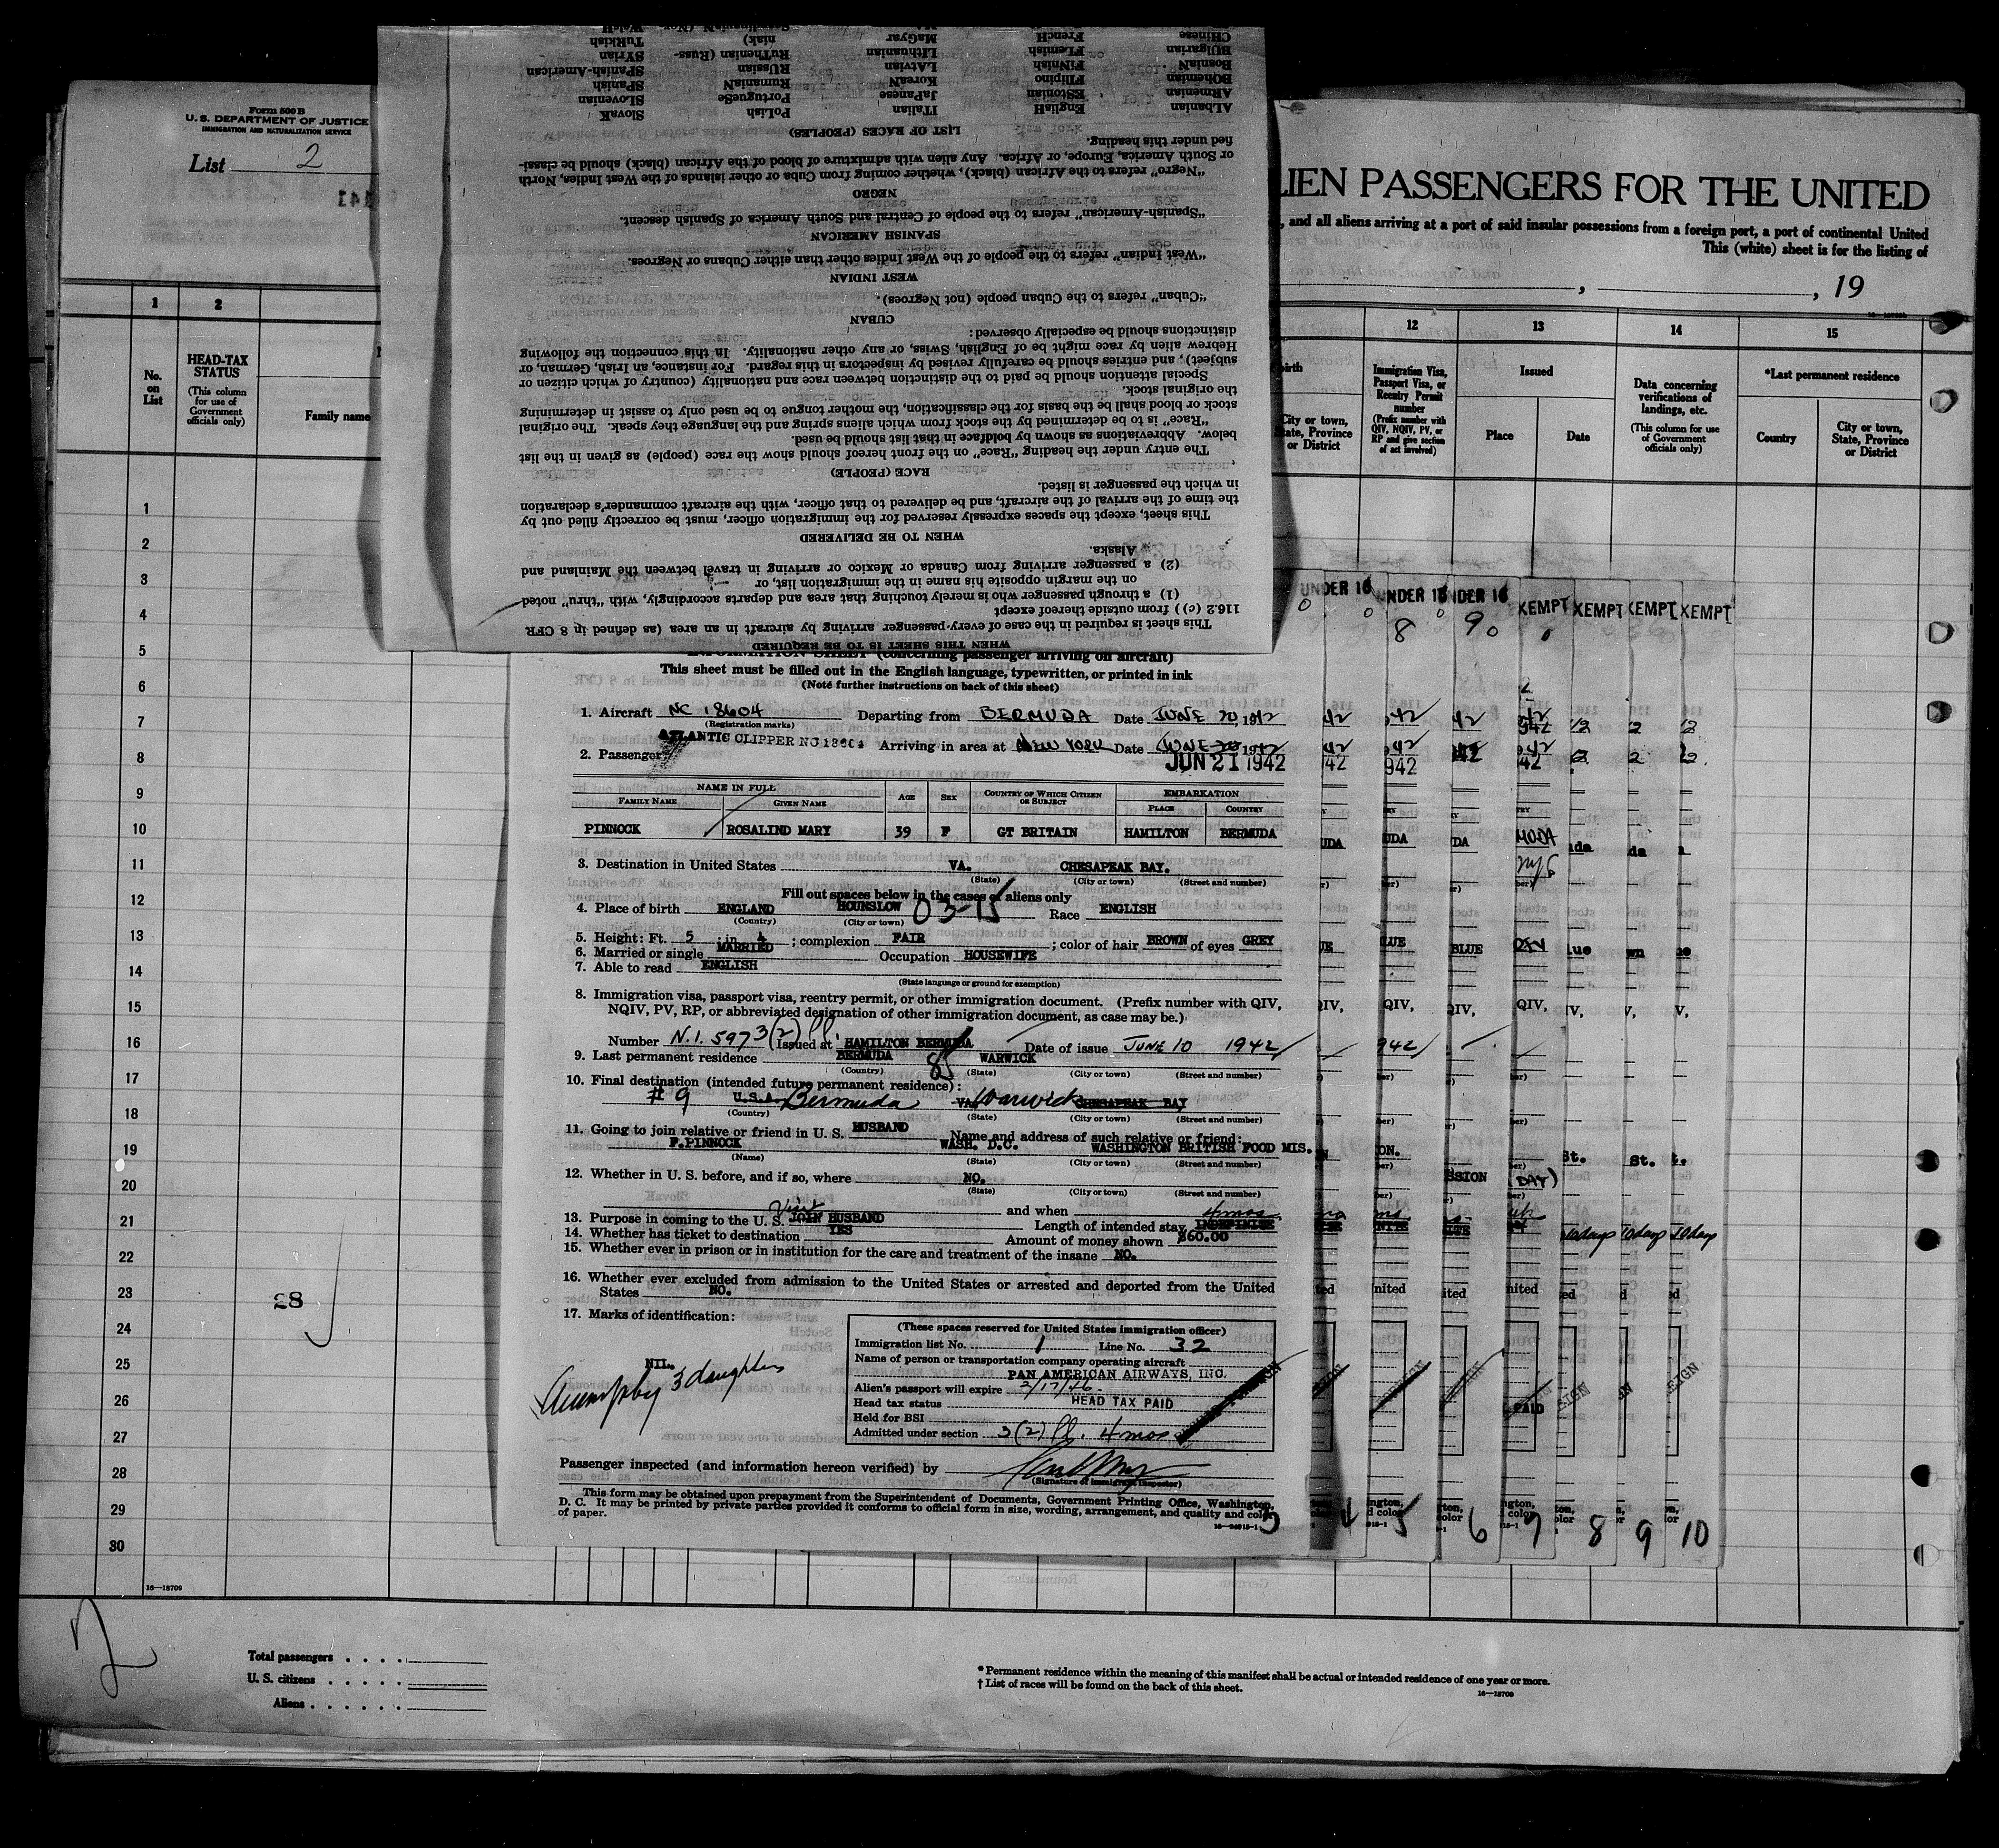 Form 500 B
U. S. DEPARTMENT OF JUSTICE
IMMIGRATION AND NATURALIZATION SERVICE
List 2
LIEN PASSENGERS FOR THE UNITED
, and all aliens arriving at a port of said insular possessions from a foreign port, a port of continental United
This (white) sheet is for the listing of
, , 19
1 2
No. on List
HEAD-TAX STATUS
(This column for use of Government officials only)
Family name
12 13 14 15
City or town, State, Province or District
Immigration Visa, Passport Visa, or Reentry Permit number
(Prefix number with QIV, NQIV, PV, or RP and give section of act involved)
Issued
Place Date
Data concerning verifications of landings, etc.
(This column for use of Government officials only)
*Last permanent residence
Country
City or town, State, Province or District
WHEN THIS SHEET IS TO BE REQUIRED
This sheet is required in the case of every passenger arriving by aircraft in an area (as defined in 8 CFR
116.2 (c)) from outside thereof except
(1) a through passenger who is merely touching that area and departs accordingly, with "thru" noted
on the margin opposite his name in the immigration list, or
(2) a passenger arriving from Canada or Mexico or arriving in travel between the Mainland and
Alaska.
WHEN TO BE DELIVERED
This sheet, except the spaces expressly reserved for the immigration officer, must be correctly filled out by
the time of the arrival of the aircraft, and be delivered to that officer, with the aircraft commander's declaration
in which the passenger is listed.
RACE (PEOPLE)
The entry under the heading "Race" on the front hereof should show the race (people) as given in the list
below. Abbreviations as shown by boldface in that list should be used.
"Race" is to be determined by the stock from which aliens spring and the language they speak. The original
stock or blood shall be the basis for the classification, the mother tongue to be used only to assist in determining
the original stock.
Special attention should be paid to the distinction between race and nationality (country of which citizen or
subject), and entries should be carefully revised by inspectors in this regard. For instance, an Irish, German, or
Hebrew alien by race might be of English, Swiss, or any other nationality. In this connection the following
distinctions should be especially observed:
CUBAN
"Cuban" refers to the Cuban people (not Negroes).
WEST INDIAN
"West Indian" refers to the people of the West Indies other than either Cubans or Negroes.
SPANISH AMERICAN
"Spanish-American" refers to the people of Central and South America of Spanish descent.
NEGRO
"Negro" refers to the African (black), whether coming from Cuba or other islands of the West Indies, North
or South America, Europe, or Africa. Any alien with admixture of blood of the African (black) should be classi-
fied under this heading.
LIST OF RACES (PEOPLES)
AlBanian EnglisH ITalian PoLish SlovaK
ARmenian EStonian JaPanese PortugueSe SLovenian
BOhemian FIlipino KoreaN RumaniaN SPaniSh
BosniaN FiNnish LAtvian RUssian SPanish-American
BUlgarian FLemish LIthuanian RuThenian (Russ- SYrian
CHinese FrencH MaGyar niak) TuRkish
INFORMATION SHEET (concerning passenger arriving on aircraft)
This sheet must be filled out in the English language, typewritten, or printed in ink
(Note further instructions on back of this sheet)
1. Aircraft NC 18604 Departing from BERMUDA Date JUNE 20, 1942
(Registration marks)
ATLANTIC CLIPPER NC 18604 Arriving in area at NEW YORK Date JUNE 20 1942
2. Passenger JUN 21 1942
NAME IN FULL
FAMILY NAME GIVEN NAME AGE SEX COUNTRY OF WHICH CITIZEN OR SUBJECT EMBARKATION PLACE COUNTRY
PINNOCK ROSALIND MARY 39 F GT BRITAIN HAMILTON BERMUDA
3. Destination in United States VA. CHESAPEAK BAY.
(State) (City or town) (Street and number)
Fill out spaces below in the cases of aliens only
4. Place of birth ENGLAND HOUNSLOW 03-15 Race ENGLISH
(Country) (City or town)
5. Height: Ft. 5 ; in 4 ; complexion FAIR ; color of hair BROWN of eyes GREY
6. Married or single MARRIED Occupation HOUSEWIFE
7. Able to read ENGLISH
(State language or ground for exemption)
8. Immigration visa, passport visa, reentry permit, or other immigration document. (Prefix number with QIV,
NQIV, PV, RP, or abbreviated designation of other immigration document, as case may be.)
Number N.I. 597 3(2) Issued at HAMILTON BERMUDA Date of issue JUNE 10 1942
9. Last permanent residence BERMUDA 85 WARWICK
(Country) (State) (City or town) (Street and number)
10. Final destination (intended future permanent residence):
# 9 U.S.A. Bermuda VA. Warwick CHESAPEAK BAY
(Country) (State) (City or town) (Street and number)
11. Going to join relative or friend in U. S. HUSBAND Name and address of such relative or friend:
F.PINNOCK WASH. D.C. WASHINGTON BRITISH FOOD MIS.
(Name) (State) (City or town) (Street and number)
12. Whether in U. S. before, and if so, where NO.
(State) (City or town) (Street and number)
and when
13. Purpose in coming to the U. S. Visit JOIN HUSBAND Length of intended stay 4 mos INDEFINITE
14. Whether has ticket to destination YES Amount of money shown $60.00
15. Whether ever in prison or in institution for the care and treatment of the insane NO.
16. Whether ever excluded from admission to the United States or arrested and deported from the United
States NO.
17. Marks of identification:
NIL.
Accompby 3 daughters
(These spaces reserved for United States immigration officer)
Immigration list No. 1 Line No. 32
Name of person or transportation company operating aircraft
PAN AMERICAN AIRWAYS, INC.
Alien's passport will expire 2/17/46
Head tax status HEAD TAX PAID
Held for BSI
Admitted under section 3(2) 4 mos
Passenger inspected (and information hereon verified) by
(Signature of immigrant inspector)
This form may be obtained upon prepayment from the Superintendent of Documents, Government Printing Office, Washington,
D. C. It may be printed by private parties provided it conforms to official form in size, wording, arrangement, and quality and color
of paper.
UNDER 16 UNDER 16 UNDER 16 EXEMPT XEMPT XEMPT XEMPT
8 9
10 days 10 days 10 days
4 5 6 7 8 9 10
1
2
3
4
5
6
7
8
9
10
11
12
13
14
15
16
17
18
19
20
21
22
23
28
24
25
26
27
28
29
30
16—18709
2
Total passengers
U. S. citizens
Aliens
* Permanent residence within the meaning of this manifest shall be actual or intended residence of one year or more.
† List of races will be found on the back of this sheet.
16—18709